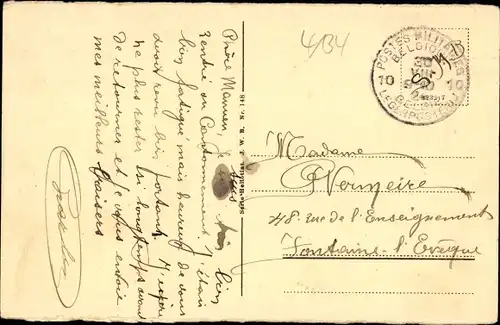 4/B4
POSTES MILITAIRES
BELGIQUE
10 10
S.M.
LEGERPOSTERIJ
Madame
Vermeire
48 rue de l'Enseignement
Fontaine-l'Evêque
Chère Maman, je suis bien
rentré au Cantonnement, j'étais
bien fatigué mais heureux de vous
avoir revu bien portant. J'espère
ne plus rester si longtemps avant
de retourner et je vous envoie
mes meilleurs baisers